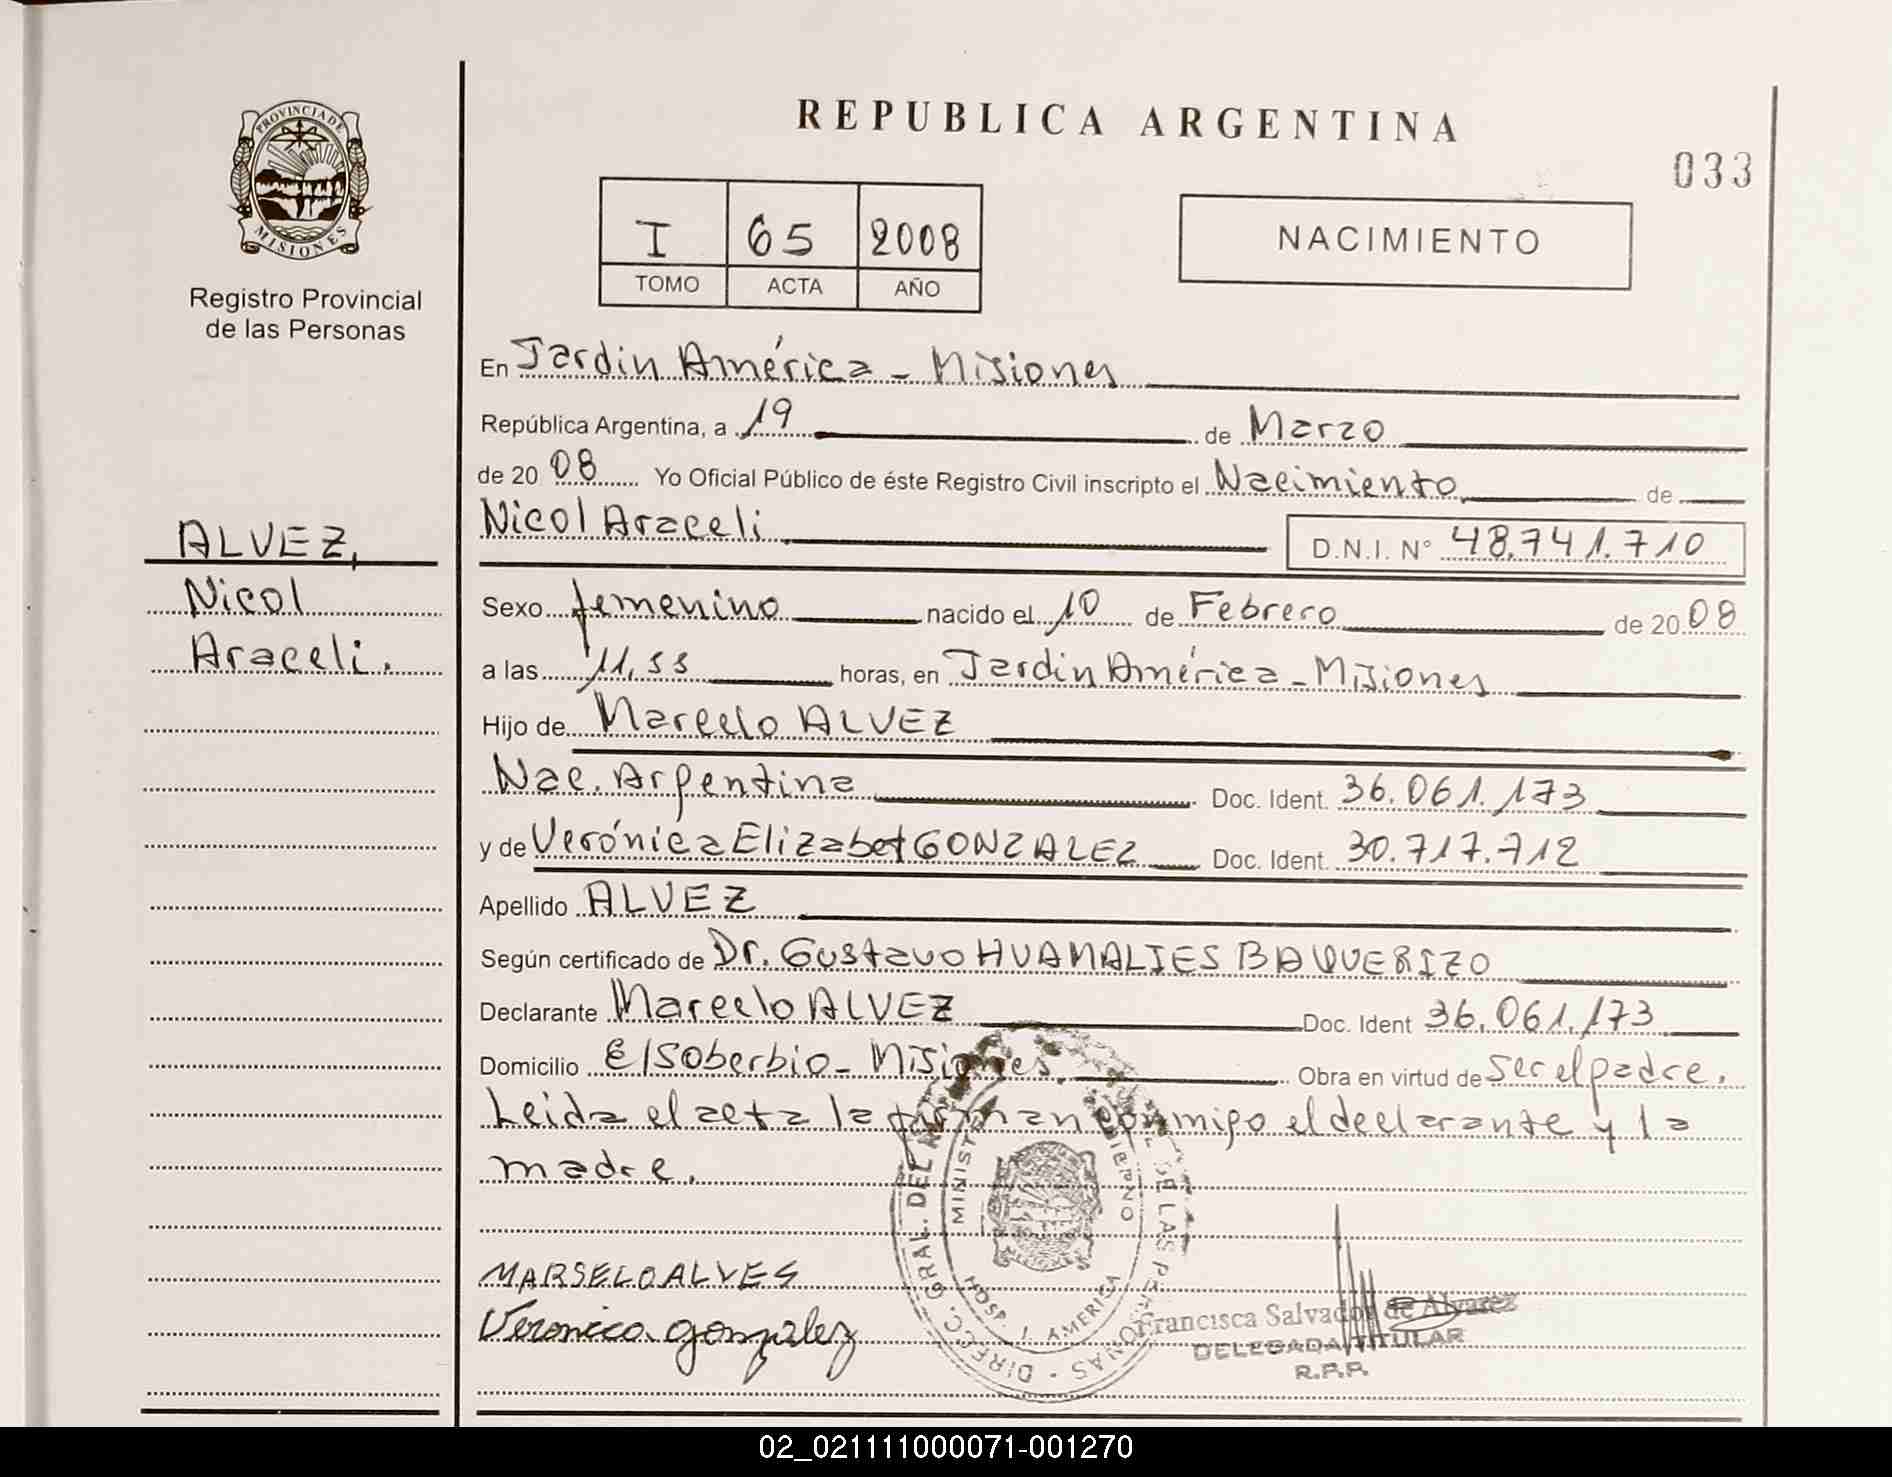 PROVINCIA DE
MISIONES
Registro Provincial
de las Personas
ALVEZ,
Nicol
Araceli.
REPUBLICA ARGENTINA
033
I 65 2008
TOMO ACTA AÑO
NACIMIENTO
En Jardin América - Misiones
República Argentina, a 19 de Marzo
de 20 08 Yo Oficial Público de éste Registro Civil inscripto el Nacimiento de
Nicol Araceli D.N.I. N° 48.741.710
Sexo femenino nacido el 10 de Febrero de 20 08
a las 11,53 horas, en Jardin América - Misiones
Hijo de Marcelo ALVEZ
Nac. Argentina Doc. Ident. 36.061.173
y de Verónica Elizabet GONZALEZ Doc. Ident. 30.717.712
Apellido ALVEZ
Según certificado de Dr. Gustavo HUAMALIES BAQUERIZO
Declarante Marcelo ALVEZ Doc. Ident 36.061.173
Domicilio El Soberbio - Misiones. Obra en virtud de ser el padre.
Leida el acta la firman conmigo el declarante y la
madre.
MARSELO ALVES
Veronica gonzalez
DIRECC. GRAL. DEL DE LAS PERSONAS
HOSP. J. AMERICA
Francisca Salvador de Alvarez
DELEGADA TITULAR
R.P.P.
02_021111000071-001270